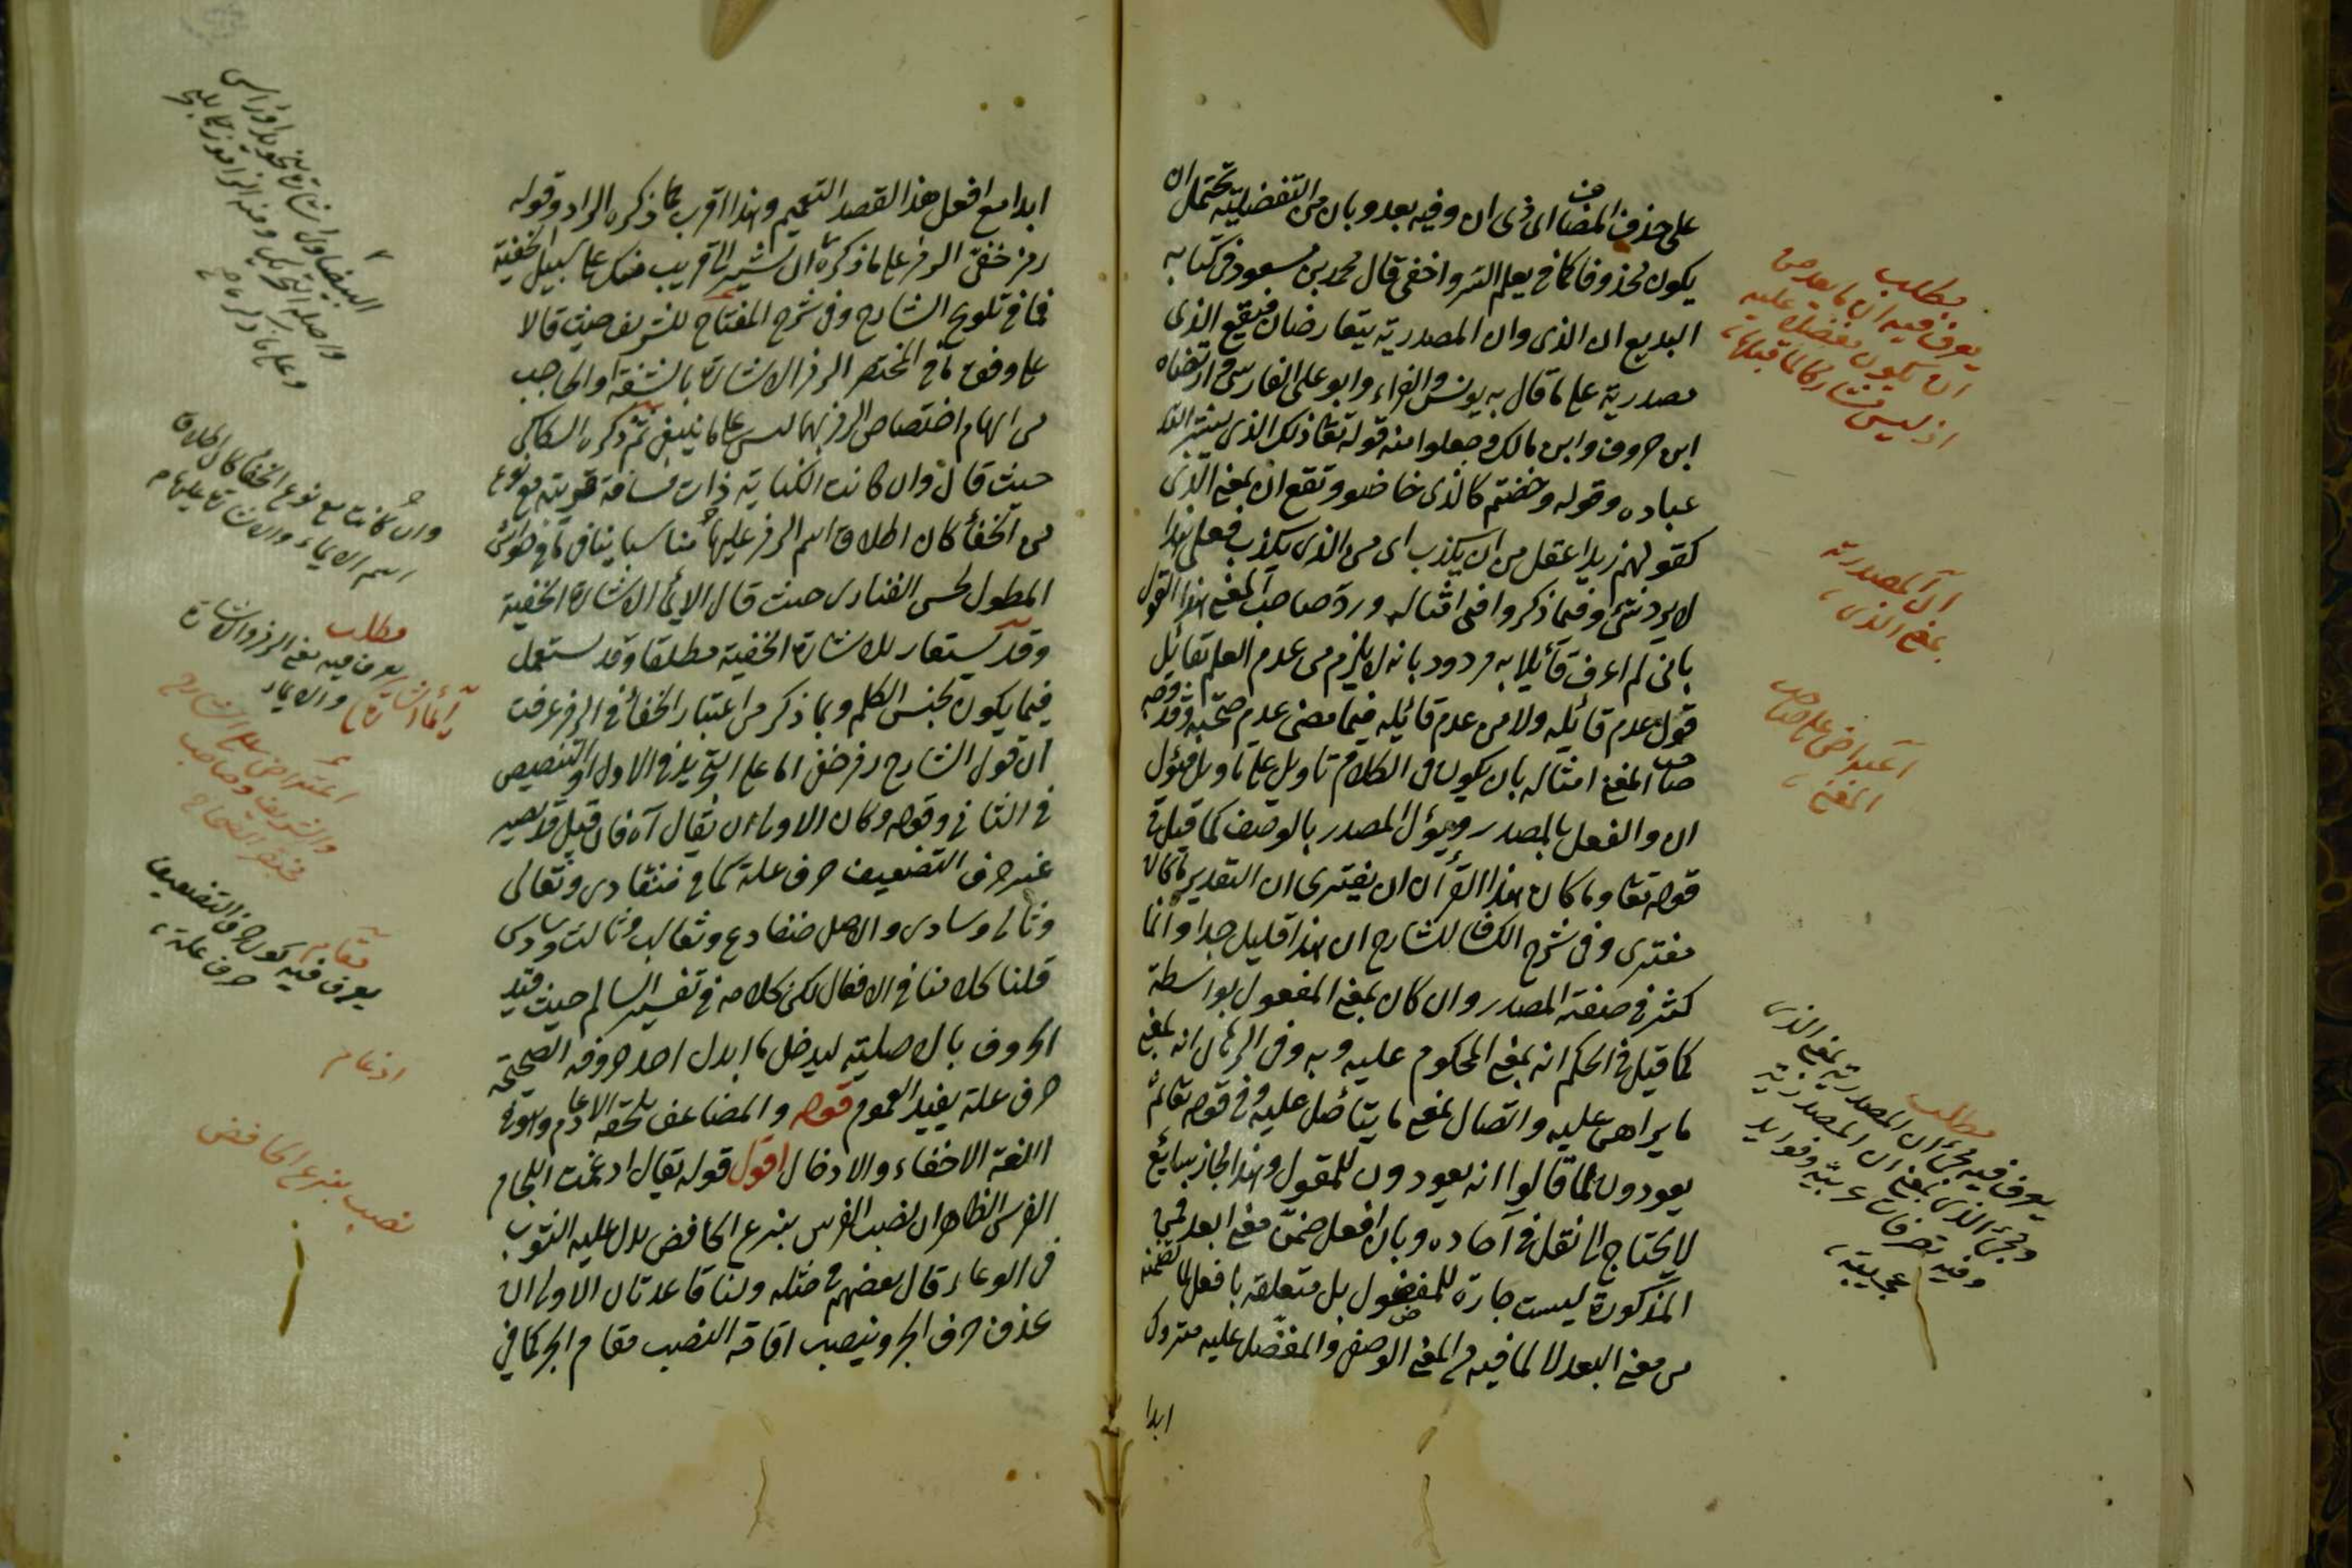 على حذف المضاف الى ذى ان وفيه بعد وبان من التفضيلية تحتمل ان
يكون محذوفا كما فى يعلم السر واخفى قال محمد بن مسعود فى كتابه
البديع ان الذى وان المصدرية يتقارضان فيقع الذى
مصدرية على ما قال به يونس والفراء وابو على الفارسى وارتضاه
ابن خروف وابن مالك وجعلوا منه قوله تعا ذلك الذى يبشر الله
عباده وقوله وخضتم كالذى خاضو وتقع ان بمعنى الذى
كقولهم زيد اعقل من ان يكذب اى من الذى يكذب فعلى هذا
لا يرد شئ وفيما ذكروا فى امثاله ورد صاحب المغنى هذا القول
بانى لم اعرف قائلا به مردود بانه لا يلزم من عدم العلم بقائل
قول عدم قائله ولا من عدم قائله فيما مضى عدم صحته وقد وجه
صاحب المغنى امثاله بان يكون فى الكلام تاويل على تاويل فيؤل
ان والفعل بالمصدر ويؤل المصدر بالوصف كما قيل فى
قوله تعا وما كان هذا القرآن ان يفترى ان التقدير ما كان
مفترى وفى شرح الكشاف للشارح ان هذا قليل جدا وانما
كثر فى صنعة المصدر وان كان بمعنى المفعول بواسطة
كما قيل فى الحكم انه بمعنى المحكوم عليه وبه وفى الرهان انه بمعنى
ما يراهن عليه واتصال بمعنى ما يتأصل عليه وفى قوله تعا ثم
يعودون لما قالوا انه يعودون للمقول وهذا المجاز سائغ
لا يحتاج الى نقل فى آحاده وبان افعل ضمن معنى ابعد فمن
المذكورة ليست جارة للمفضول بل متعلقة بافعل لما تضمنه
من معنى البعد لا لما فيه من المعنى الوصفى والمفضل عليه متروك
ابدا
مطلب
يعرف فيه ان ما بعد من
ان يكون مفضلا عليه
اذ ليس مشاركا لما قبلها
ان المصدرية
بمعنى الذى
اعتراض على صاحب
المغنى
مطلب
يعرف فيه مجئ ان المصدرية بمعنى الذى
ومجئ الذى بمعنى ان المصدرية
وفيه تصرفات عربية وفوايد
عجيبة
ابدا مع افعل هذا لقصد التعميم وهذا اقرب مما ذكره الراد وقوله
رمز خفى الرمز على ما ذكره ان تشير الى قريب منك على سبيل الخفية
فما فى تلويح الشارح وفى شرح المفتاح للشريف حيث قالا
على وفق ما فى المختصر الرمز الاشارة بالشفة او الحاجب
من ايهام اختصاص الرمز بهما ليس على ما ينبغى ثم ذكره السكاكى
حيث قال وان كانت الكناية ذات مسافة قريبة مع نوع
من الخفأ كان اطلاق اسم الرمز عليها مناسبا ينافى ما فى حواشى
المطول لحسن الفنارى حيث قال الايمأ الاشارة الخفية
وقد يستعار للاشارة الخفية مطلقا وقد يستعمل
فيما يكون بجنس الكلم وبما ذكر من اعتبار الخفأ فى الرمز عرفت
ان قول الشارح رمز خفى اما على التجريد فى الاول او التنصيص
فى الثانى وقوله وكان الاولى ان يقال آه فان قيل قد يصير
غير حرف التضعيف حرف علة كما فى ضفادى وثعالى
وثالى وسادى والاصل ضفادع وثعالب وثالث وسادس
قلنا كلامنا فى الافعال لكن كلامه فى تفسير السالم حيث قيد
الحروف بالاصلية ليدخل ما ابدل احد حروفه الصحيحة
حرف علة يفيد العموم قوله والمضاعف يلحقه الادغام وهو فى
اللغة الاخفاء والادخال اقول قوله يقال ادغمت اللجام
الفرس الظاهر ان نصب الفرس بنزع الخافض يدل عليه الثوب
فى الوعاء قال بعضهم فى مثله ولنا قاعدتان الاولى ان
يحذف حرف الجر وينصب اقامة النصب مقام الجر كما فى
وان كانت مع نوع الخفأ كان اطلاق
اسم الايماء والاشارة عليها
مطلب
يعرف فيه معنى الرمز والاشارة
والايماء
اعتراض على الشارح
والشريف وصاحب
مختصر الصحاح
مقام
يعرف فيه كون حرف التضعيف
حرف علة
ادغام
نصب بنزع الخافض